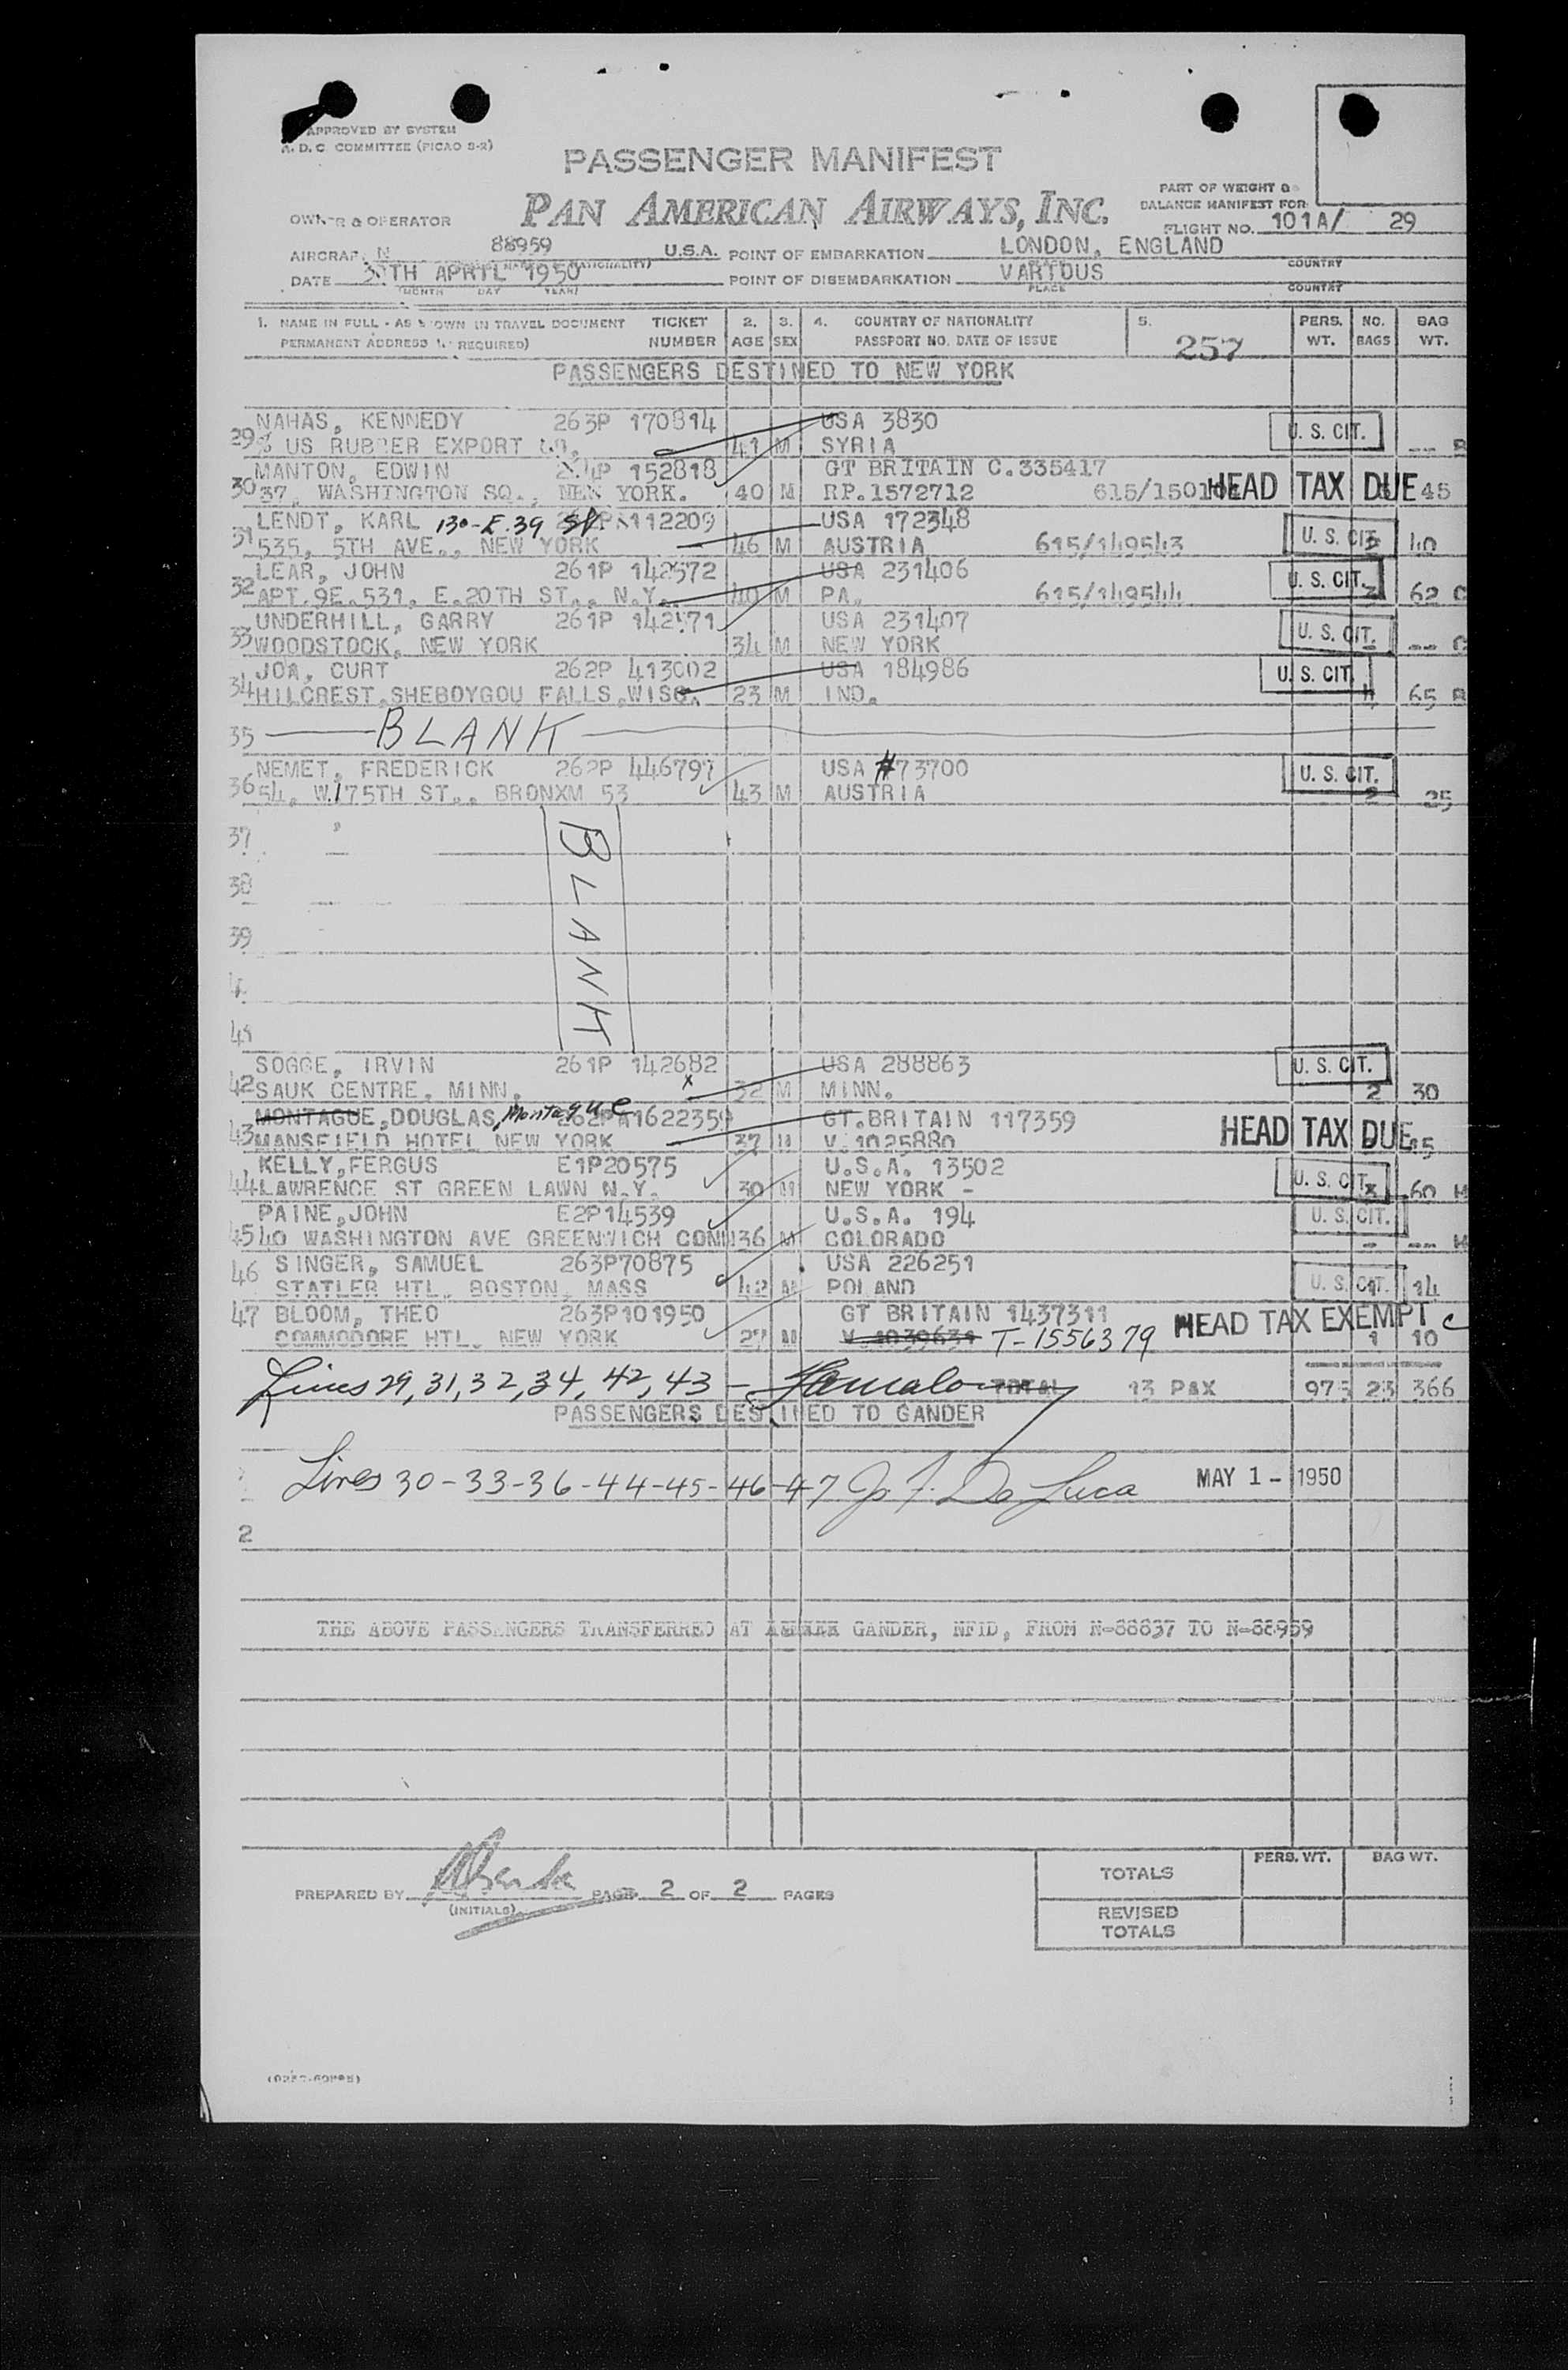 APPROVED BY SYSTEM
A. D. C. COMMITTEE (PICAO S-2)
PASSENGER MANIFEST
PAN AMERICAN AIRWAYS, INC.
PART OF WEIGHT &
BALANCE MANIFEST FOR
OWNER & OPERATOR
FLIGHT NO. 101A/ 29
AIRCRAFT N 88959 U.S.A. POINT OF EMBARKATION LONDON, ENGLAND
DATE 30TH APRIL 1950 POINT OF DISEMBARKATION VARIOUS
(MONTH DAY YEAR) PLACE COUNTRY
1. NAME IN FULL - AS SHOWN IN TRAVEL DOCUMENT TICKET 2. 3. 4. COUNTRY OF NATIONALITY 5. PERS. NO. BAG
PERMANENT ADDRESS (REQUIRED) NUMBER AGE SEX PASSPORT NO. DATE OF ISSUE 257 WT. BAGS WT.
PASSENGERS DESTINED TO NEW YORK
NAHAS, KENNEDY 263P 170814 USA 3830 U. S. CIT.
29 % US RUBBER EXPORT CO. 41 M SYRIA -- B
MANTON, EDWIN 152818 GT BRITAIN C.335417
30 37, WASHINGTON SQ., NEW YORK. 40 M RP.1572712 HEAD TAX DUE 45
LENDT, KARL 130-E.39 St. 112209 USA 172348 U. S. CIT.
31 535, 5TH AVE., NEW YORK 46 M AUSTRIA 615/149543 40
LEAR, JOHN 261P 142572 USA 231406 U. S. CIT.
32 APT.9E.531, E.20TH ST., N.Y. 40 M PA. 615/149544 3 62 C
UNDERHILL, GARRY 261P 142571 USA 231407 U. S. CIT.
33 WOODSTOCK, NEW YORK 34 M NEW YORK - -- C
JOA, CURT 262P 413002 USA 184986 U. S. CIT.
34 HILCREST,SHEBOYGOU FALLS,WISC. 23 M IND. 4 65 B
35 BLANK
NEMET, FREDERICK 262P 446797 USA #73700 U. S. CIT.
36 54, W.175TH ST., BRONXM 53 43 M AUSTRIA 2 25
37
BLANK
38
39
4
41
SOGGE, IRVIN 261P 142682 USA 288863 U. S. CIT.
42 SAUK CENTRE, MINN. x 32 M MINN. 2 30
MONTAGUE,DOUGLAS, Montague 262PA1622359 GT.BRITAIN 117359
43 MANSFIELD HOTEL NEW YORK 37 M V.1025880 HEAD TAX DUE 15
KELLY,FERGUS E1P20575 U.S.A. 13502 U. S. CIT.
44 LAWRENCE ST GREEN LAWN N.Y. 30 M NEW YORK - 3 60 H
PAINE,JOHN E2P14539 U.S.A. 194 U. S. CIT.
45 40 WASHINGTON AVE GREENWICH CONN 36 M COLORADO - -- H
SINGER, SAMUEL 263P70875 USA 226251
46 STATLER HTL, BOSTON, MASS 42 M POLAND U. S. CIT. 1 14
47 BLOOM, THEO 263P101950 GT BRITAIN 1437311 HEAD TAX EXEMPT C
COMMODORE HTL, NEW YORK 27 M V 1039631 T-1556379 1 10
Lines 29,31,32,34,42,43 - TOTAL 13 PAX 975 23 366
PASSENGERS DESTINED TO GANDER
Lines 30-33-36-44-45-46-47 J. F. De Luca MAY 1 - 1950
2
THE ABOVE PASSENGERS TRANSFERRED AT GANDER, NFLD, FROM N-88837 TO N-88959
PERS. WT. BAG WT.
TOTALS
PREPARED BY PAGE 2 OF 2 PAGES
(INITIALS)
REVISED
TOTALS